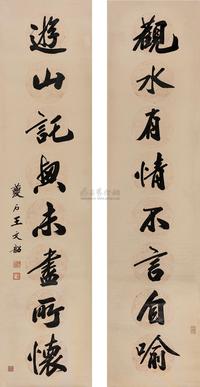 觀水有情不言自喻
遊山託興未盡所懷
夔石王文韶